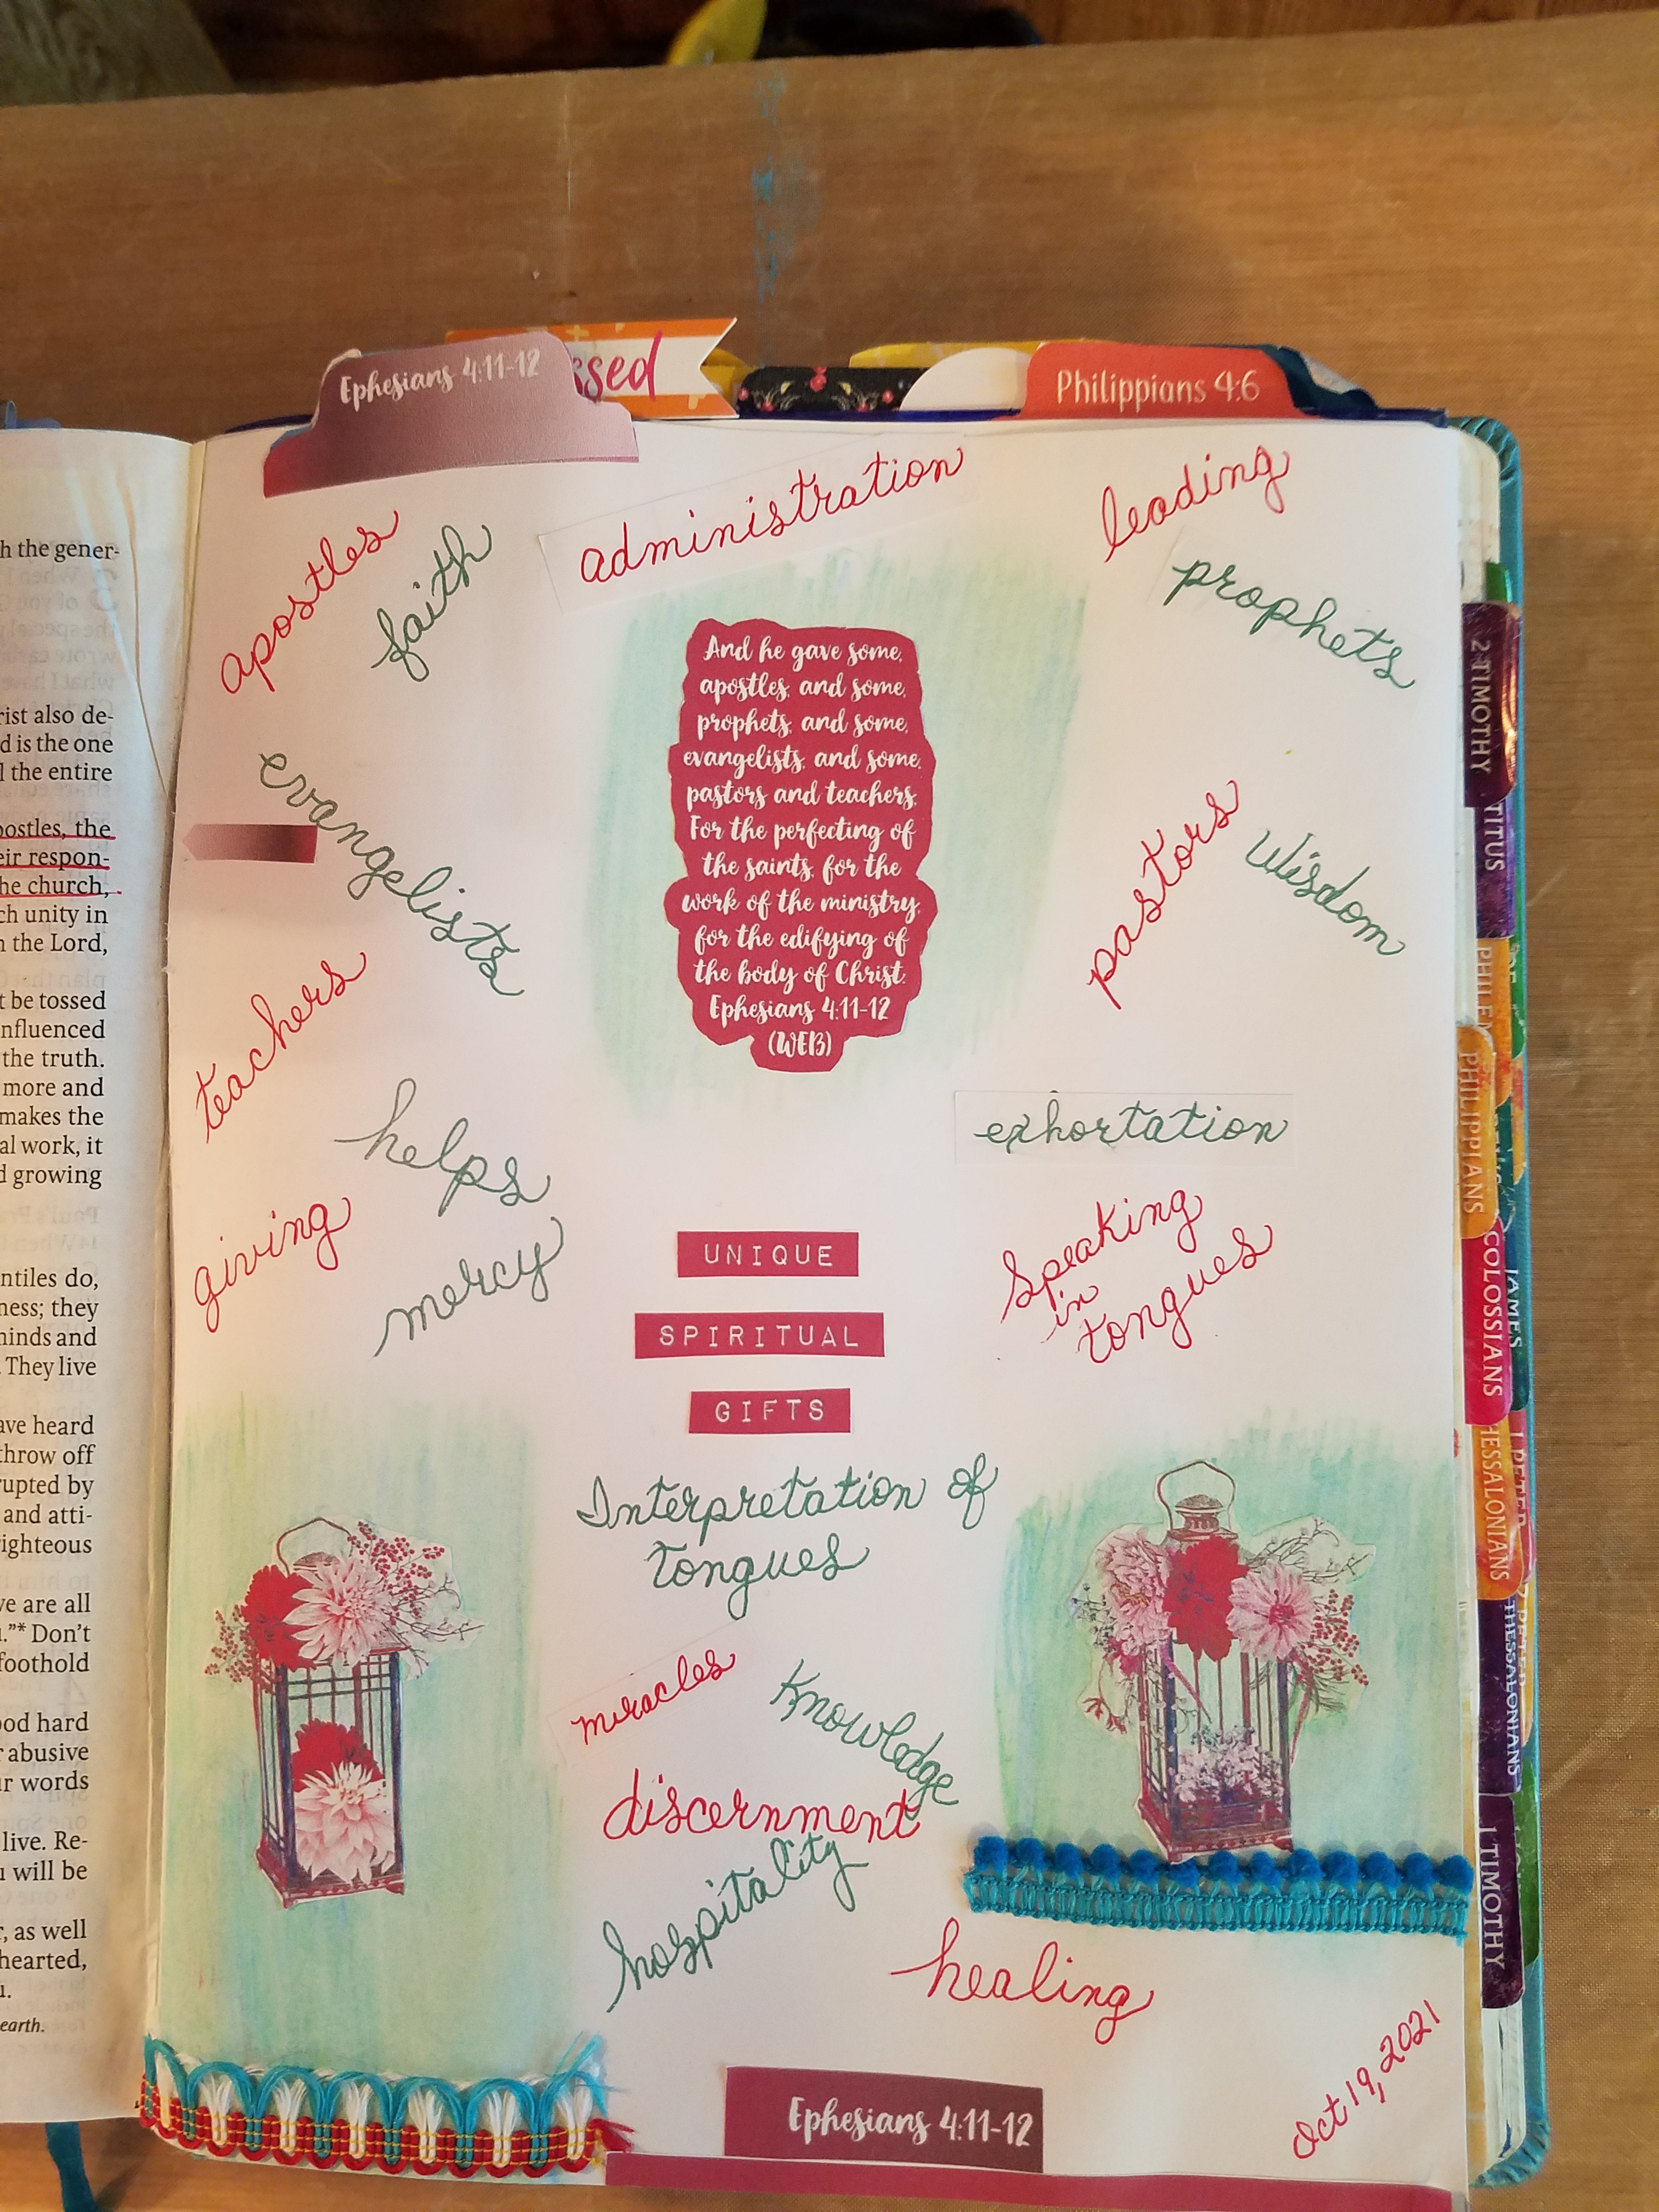 Ephesians 4:11-12
ssed
Philippians 4:6
administration
leading
apostles
faith
prophets
And he gave some,
apostles, and some,
prophets, and some,
evangelists, and some,
pastors and teachers,
For the perfecting of
the saints, for the
work of the ministry,
for the edifying of
the body of Christ.
Ephesians 4:11-12
(WEB)
evangelists
pastors
Wisdom
teachers
helps
exhortation
giving
mercy
Speaking
in
tongues
UNIQUE
SPIRITUAL
GIFTS
Interpretation of
tongues
miracles
Knowledge
discernment
hospitality
healing
Oct 19, 2021
Ephesians 4:11-12
h the gener-
rist also de-
d is the one
l the entire
postles, the
eir respon-
he church,
ch unity in
n the Lord,
t be tossed
nfluenced
the truth.
more and
makes the
al work, it
d growing
ntiles do,
ness; they
minds and
. They live
ave heard
throw off
rupted by
and atti-
righteous
ve are all
u."* Don't
foothold
ood hard
r abusive
ur words
live. Re-
u will be
r, as well
hearted,
u.
earth.
2 TIMOTHY
TITUS
PHILEM
PHILIPPIANS
COLOSSIANS
JAMES
HESSALONIANS
1 PETER
2 PETER
THESSALONIANS
1 TIMOTHY